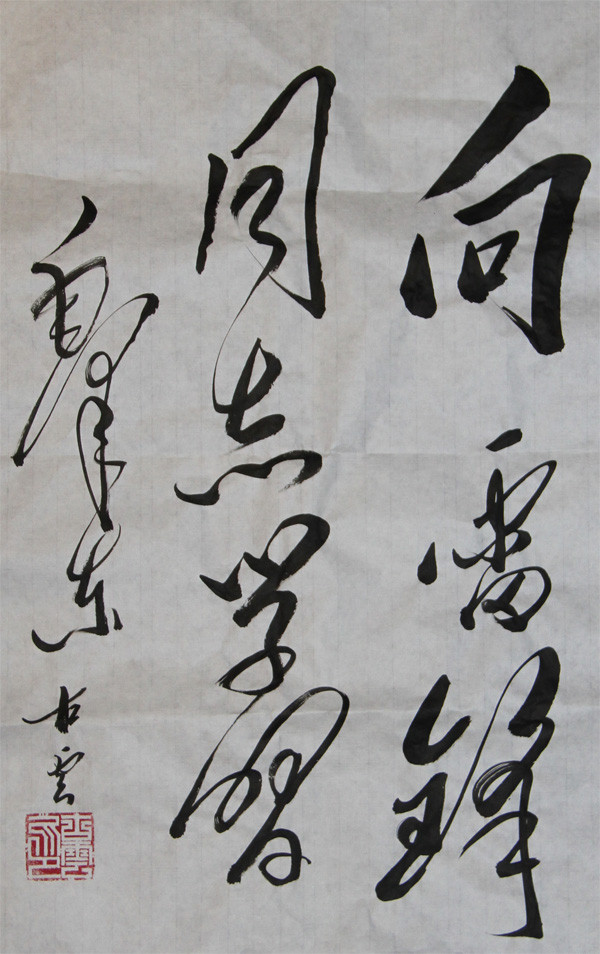 向雷锋
同志学习
毛泽东
云